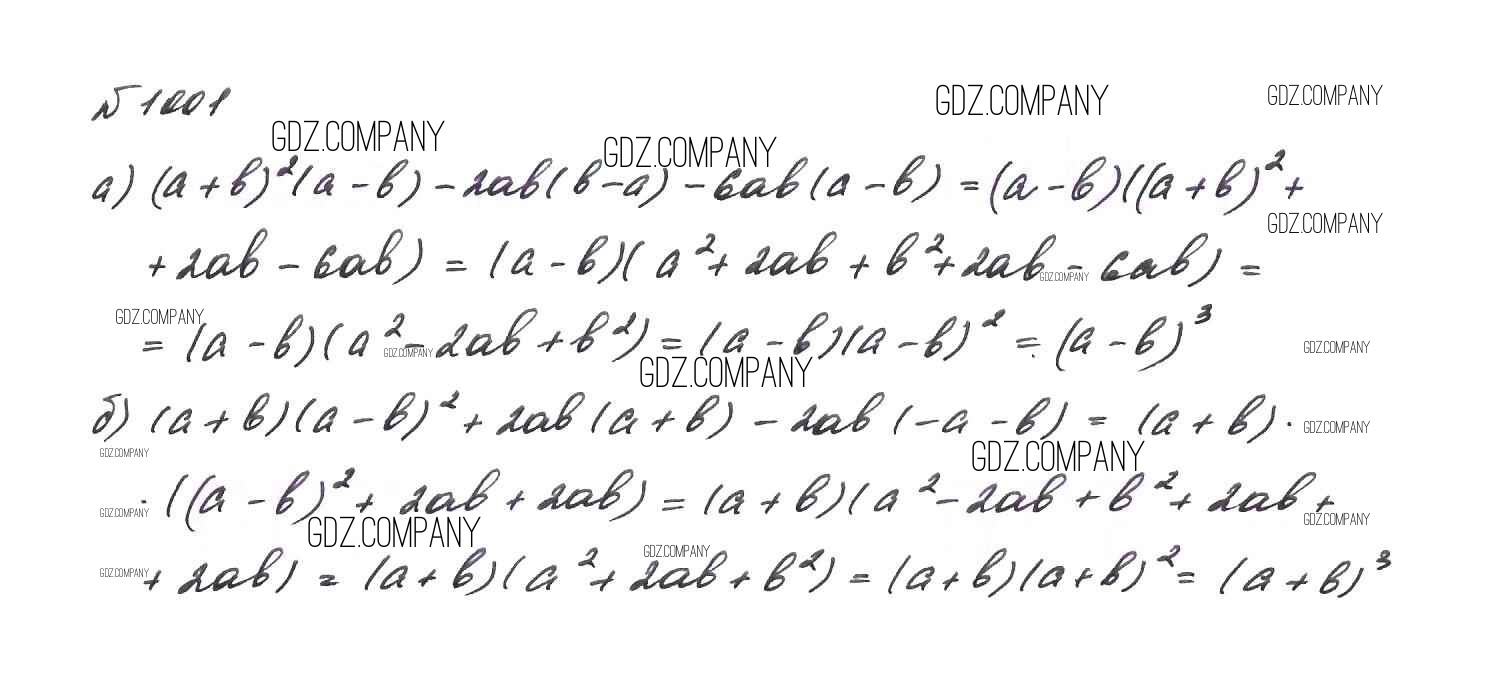 №1001
GDZ.COMPANY GDZ.COMPANY
GDZ.COMPANY GDZ.COMPANY
а) (a+b)²(a-b)-2ab(b-a)-6ab(a-b)=(a-b)((a+b)²+
GDZ.COMPANY
+2ab-6ab)=(a-b)(a²+2ab+b²+2ab-6ab)=
GDZ.COMPANY
GDZ.COMPANY
=(a-b)(a²-2ab+b²)=(a-b)(a-b)²=(a-b)³
GDZ.COMPANY GDZ.COMPANY
GDZ.COMPANY
б) (a+b)(a-b)²+2ab(a+b)-2ab(-a-b)=(a+b)·
GDZ.COMPANY
GDZ.COMPANY GDZ.COMPANY
·((a-b)²+2ab+2ab)=(a+b)(a²-2ab+b²+2ab+
GDZ.COMPANY GDZ.COMPANY
GDZ.COMPANY GDZ.COMPANY
+2ab)=(a+b)(a²+2ab+b²)=(a+b)(a+b)²=(a+b)³
GDZ.COMPANY